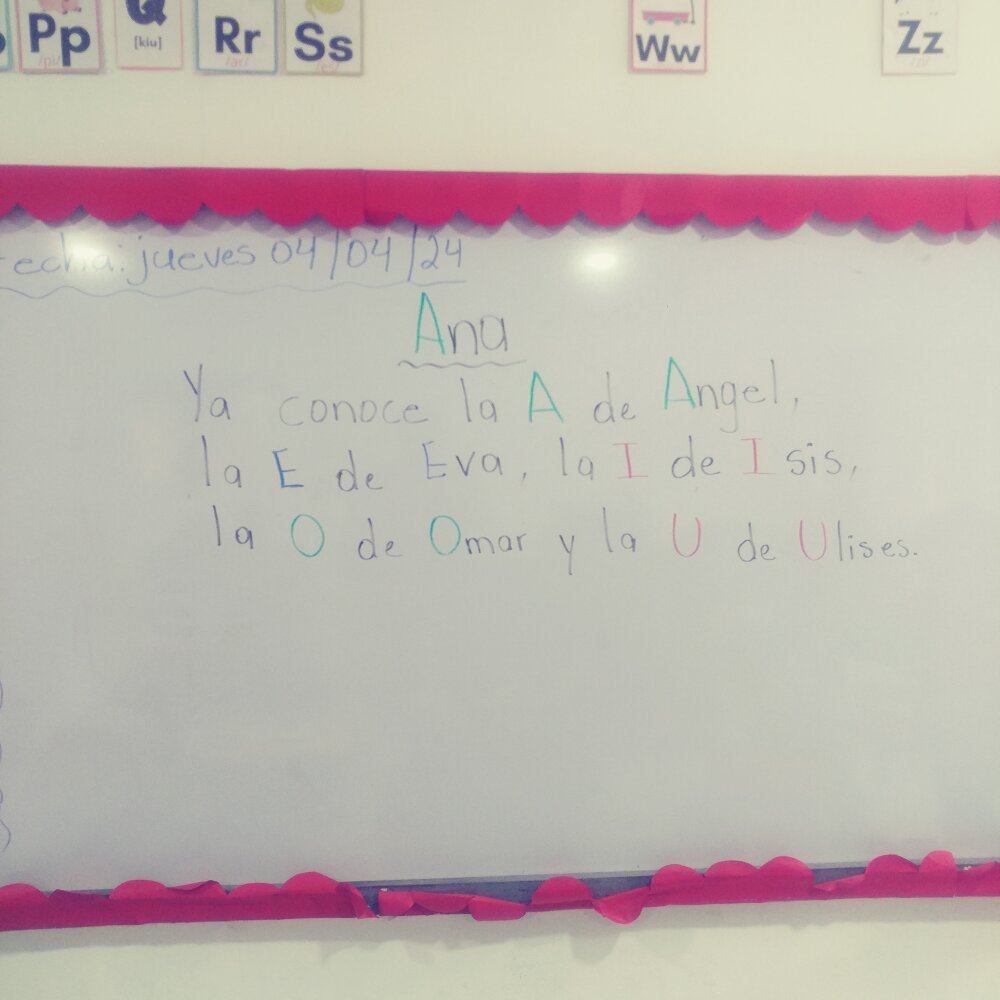 Pp
[kiu]
Rr
Ss
Ww
Zz
Fecha: jueves 04/04/24
Ana
Ya conoce la A de Angel,
la E de Eva, la I de Isis,
la O de Omar y la U de Ulises.